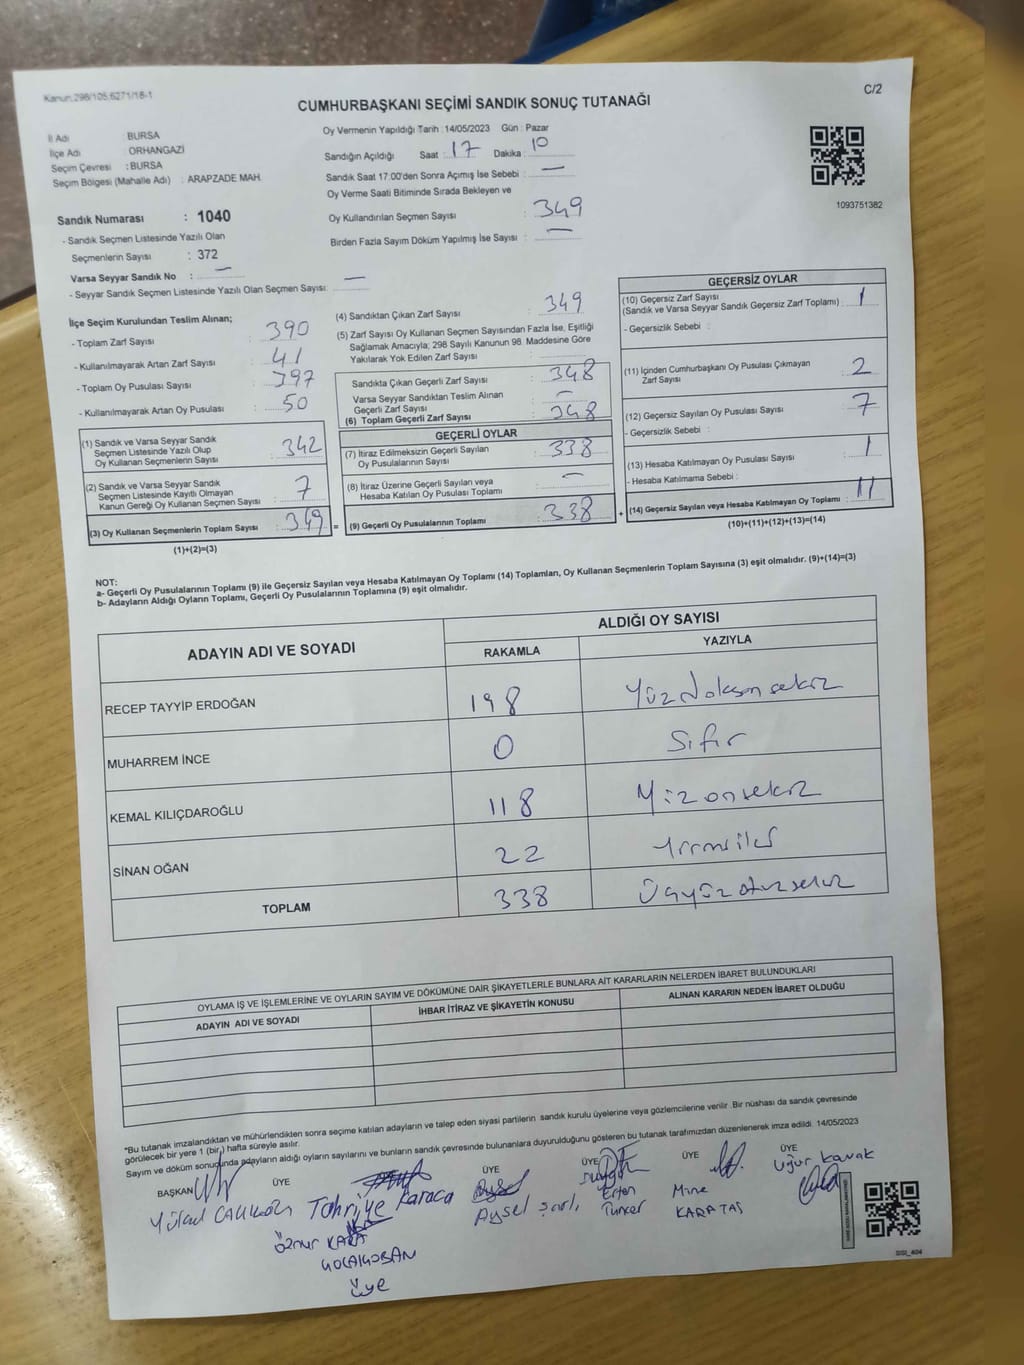 Kanun:298/105,6271/18-1
C/2
CUMHURBAŞKANI SEÇİMİ SANDIK SONUÇ TUTANAĞI
İl Adı : BURSA
İlçe Adı : ORHANGAZİ
Seçim Çevresi : BURSA
Seçim Bölgesi (Mahalle Adı) : ARAPZADE MAH.
Sandık Numarası : 1040
- Sandık Seçmen Listesinde Yazılı Olan
Seçmenlerin Sayısı : 372
Varsa Seyyar Sandık No : —
- Seyyar Sandık Seçmen Listesinde Yazılı Olan Seçmen Sayısı: —
Oy Vermenin Yapıldığı Tarih : 14/05/2023 Gün : Pazar
Sandığın Açıldığı Saat : 17 Dakika : 10
Sandık Saat 17:00'den Sonra Açımış İse Sebebi : —
Oy Verme Saati Bitiminde Sırada Bekleyen ve
Oy Kullandırılan Seçmen Sayısı : 349
Birden Fazla Sayım Döküm Yapılmış İse Sayısı : —
1093751382
İlçe Seçim Kurulundan Teslim Alınan;
- Toplam Zarf Sayısı : 390
- Kullanılmayarak Artan Zarf Sayısı : 41
- Toplam Oy Pusulası Sayısı : 397
- Kullanılmayarak Artan Oy Pusulası : 50
(1) Sandık ve Varsa Seyyar Sandık
Seçmen Listesinde Yazılı Olup
Oy Kullanan Seçmenlerin Sayısı : 342
(2) Sandık ve Varsa Seyyar Sandık
Seçmen Listesinde Kayıtlı Olmayan
Kanun Gereği Oy Kullanan Seçmen Sayısı : 7
(3) Oy Kullanan Seçmenlerin Toplam Sayısı : 349 =
(1)+(2)=(3)
(4) Sandıktan Çıkan Zarf Sayısı : 349
(5) Zarf Sayısı Oy Kullanan Seçmen Sayısından Fazla İse, Eşitliği
Sağlamak Amacıyla; 298 Sayılı Kanunun 98. Maddesine Göre
Yakılarak Yok Edilen Zarf Sayısı :
Sandıkta Çıkan Geçerli Zarf Sayısı : 348
Varsa Seyyar Sandıktan Teslim Alınan
Geçerli Zarf Sayısı : —
(6) Toplam Geçerli Zarf Sayısı : 348
GEÇERLİ OYLAR
(7) İtiraz Edilmeksizin Geçerli Sayılan
Oy Pusulalarının Sayısı : 338
(8) İtiraz Üzerine Geçerli Sayılan veya
Hesaba Katılan Oy Pusulası Toplamı : —
(9) Geçerli Oy Pusulalarının Toplamı : 338 +
GEÇERSİZ OYLAR
(10) Geçersiz Zarf Sayısı
(Sandık ve Varsa Seyyar Sandık Geçersiz Zarf Toplamı) : 1
- Geçersizlik Sebebi :
(11) İçinden Cumhurbaşkanı Oy Pusulası Çıkmayan
Zarf Sayısı : 2
(12) Geçersiz Sayılan Oy Pusulası Sayısı : 7
- Geçersizlik Sebebi :
(13) Hesaba Katılmayan Oy Pusulası Sayısı : 1
- Hesaba Katılmama Sebebi :
(14) Geçersiz Sayılan veya Hesaba Katılmayan Oy Toplamı : 11
(10)+(11)+(12)+(13)=(14)
NOT:
a- Geçerli Oy Pusulalarının Toplamı (9) ile Geçersiz Sayılan veya Hesaba Katılmayan Oy Toplamı (14) Toplamları, Oy Kullanan Seçmenlerin Toplam Sayısına (3) eşit olmalıdır. (9)+(14)=(3)
b- Adayların Aldığı Oyların Toplamı, Geçerli Oy Pusulalarının Toplamına (9) eşit olmalıdır.
ADAYIN ADI VE SOYADI
ALDIĞI OY SAYISI
RAKAMLA YAZIYLA
RECEP TAYYİP ERDOĞAN 198 Yüzdoksansekiz
MUHARREM İNCE 0 Sıfır
KEMAL KILIÇDAROĞLU 118 Yüzonsekiz
SİNAN OĞAN 22 Yirmiiki
TOPLAM 338 Üçyüzotuzsekiz
OYLAMA İŞ VE İŞLEMLERİNE VE OYLARIN SAYIM VE DÖKÜMÜNE DAİR ŞİKAYETLERLE BUNLARA AİT KARARLARIN NELERDEN İBARET BULUNDUKLARI
ADAYIN ADI VE SOYADI İHBAR İTİRAZ VE ŞİKAYETİN KONUSU ALINAN KARARIN NEDEN İBARET OLDUĞU
*Bu tutanak imzalandıktan ve mühürlendikten sonra seçime katılan adayların ve talep eden siyasi partilerin sandık kurulu üyelerine veya gözlemcilerine verilir .Bir nüshası da sandık çevresinde
görülecek bir yere 1 (bir) hafta süreyle asılır.
Sayım ve döküm sonucunda adayların aldığı oyların sayılarını ve bunların sandık çevresinde bulunanlara duyurulduğunu gösteren bu tutanak tarafımızdan düzenlenerek imza edildi. 14/05/2023
BAŞKAN ÜYE ÜYE ÜYE ÜYE ÜYE
Tahriye Karaca
Aysel Şanlı
Erten
Tuncer
Mine
KARATAŞ
Uğur Kavak
Öznur KARA
KOCAÇOBAN
Üye
SSI_404